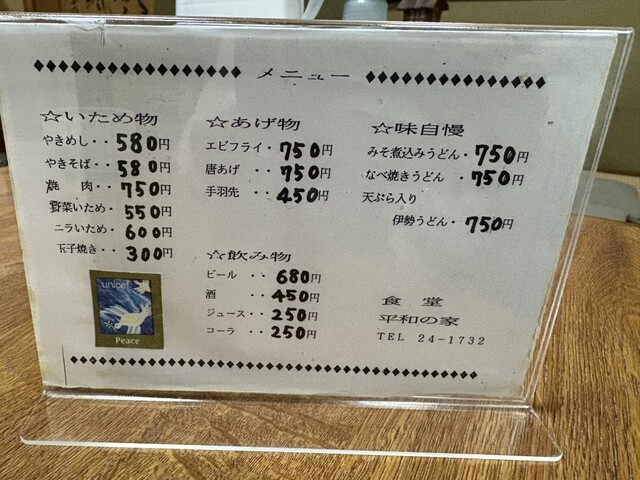 メニュー
☆いため物
やきめし・・580円
やきそば・・580円
焼 肉・・750円
野菜いため・550円
ニラいため・600円
玉子焼き・・300円
☆あげ物
エビフライ・750円
唐あげ ・・750円
手羽先 ・・450円
☆味自慢
みそ煮込みうどん・750円
なべ焼きうどん ・750円
天ぷら入り
伊勢うどん・750円
☆飲み物
ビール ・・680円
酒 ・・450円
ジュース・・250円
コーラ ・・250円
unicef
Peace
食 堂
平和の家
TEL 24-1732